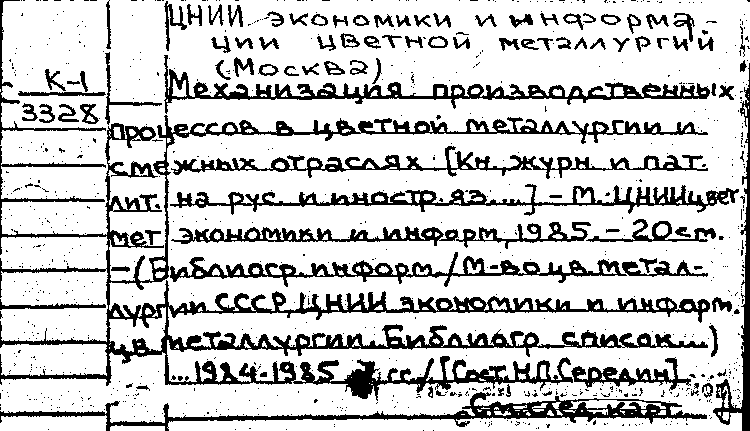 ЦНИИ экономики и информа-
ции цветной металлургии
(Москва)
К-1
3328
Механизация производственных
процессов в цветной металлургии и
смежных отраслях [Кн., журн. и пат.
лит. на рус. и иностр. яз....] - М.: ЦНИИцвет
мет экономики и информ, 1985. - 20 см.
- (Библиогр. информ. / М-во цв. метал-
лургии СССР, ЦНИИ экономики и информ.
цв. металлургии. Библиогр. список...)
...1984-1985 гг. / [Сост. Н.П. Середин]
См. след. карт.